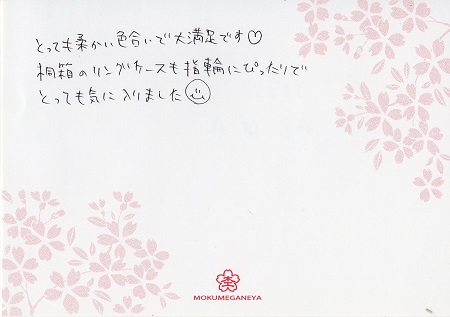 とっても柔かい色合いで大満足です♡
桐箱のリングケースも指輪にぴったりで
とっても気に入りました☺
MOKUMEGANEYA